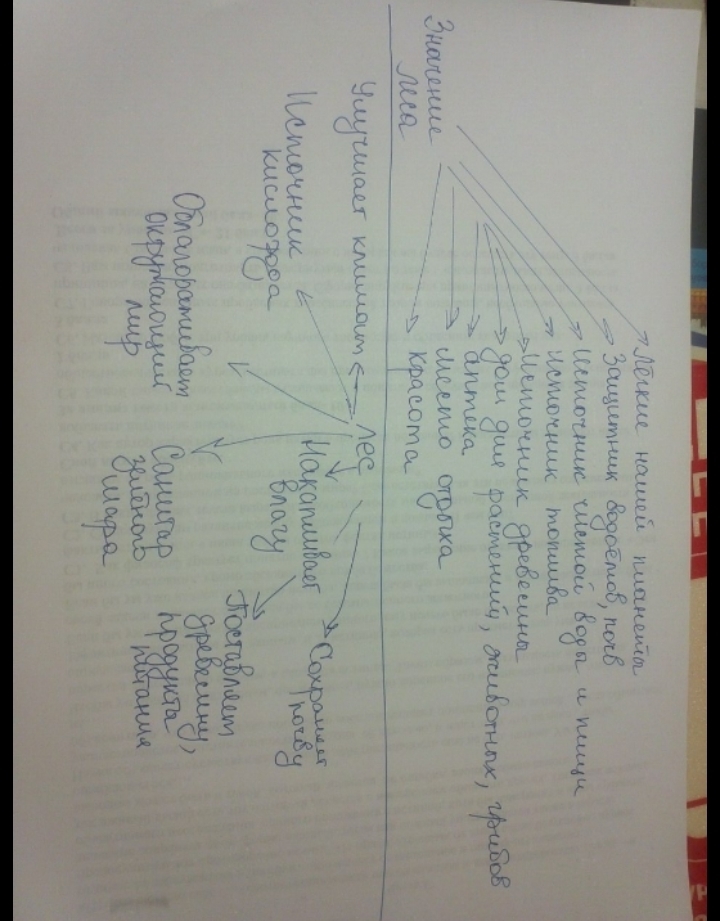 Значение
леса
Лёгкие нашей планеты
Защитник водоёмов, почв
Источник чистой воды и пищи
источник топлива
Источник древесины
дом для растений, животных, грибов
аптека
место отдыха
красота
Улучшает климат
Источник
кислорода
Облагораживает
окружающий
мир
лес
Санитар
зелёного
шара
Накапливает
влагу
Поставляет
древесину,
продукты
питания
Сохраняет
почву